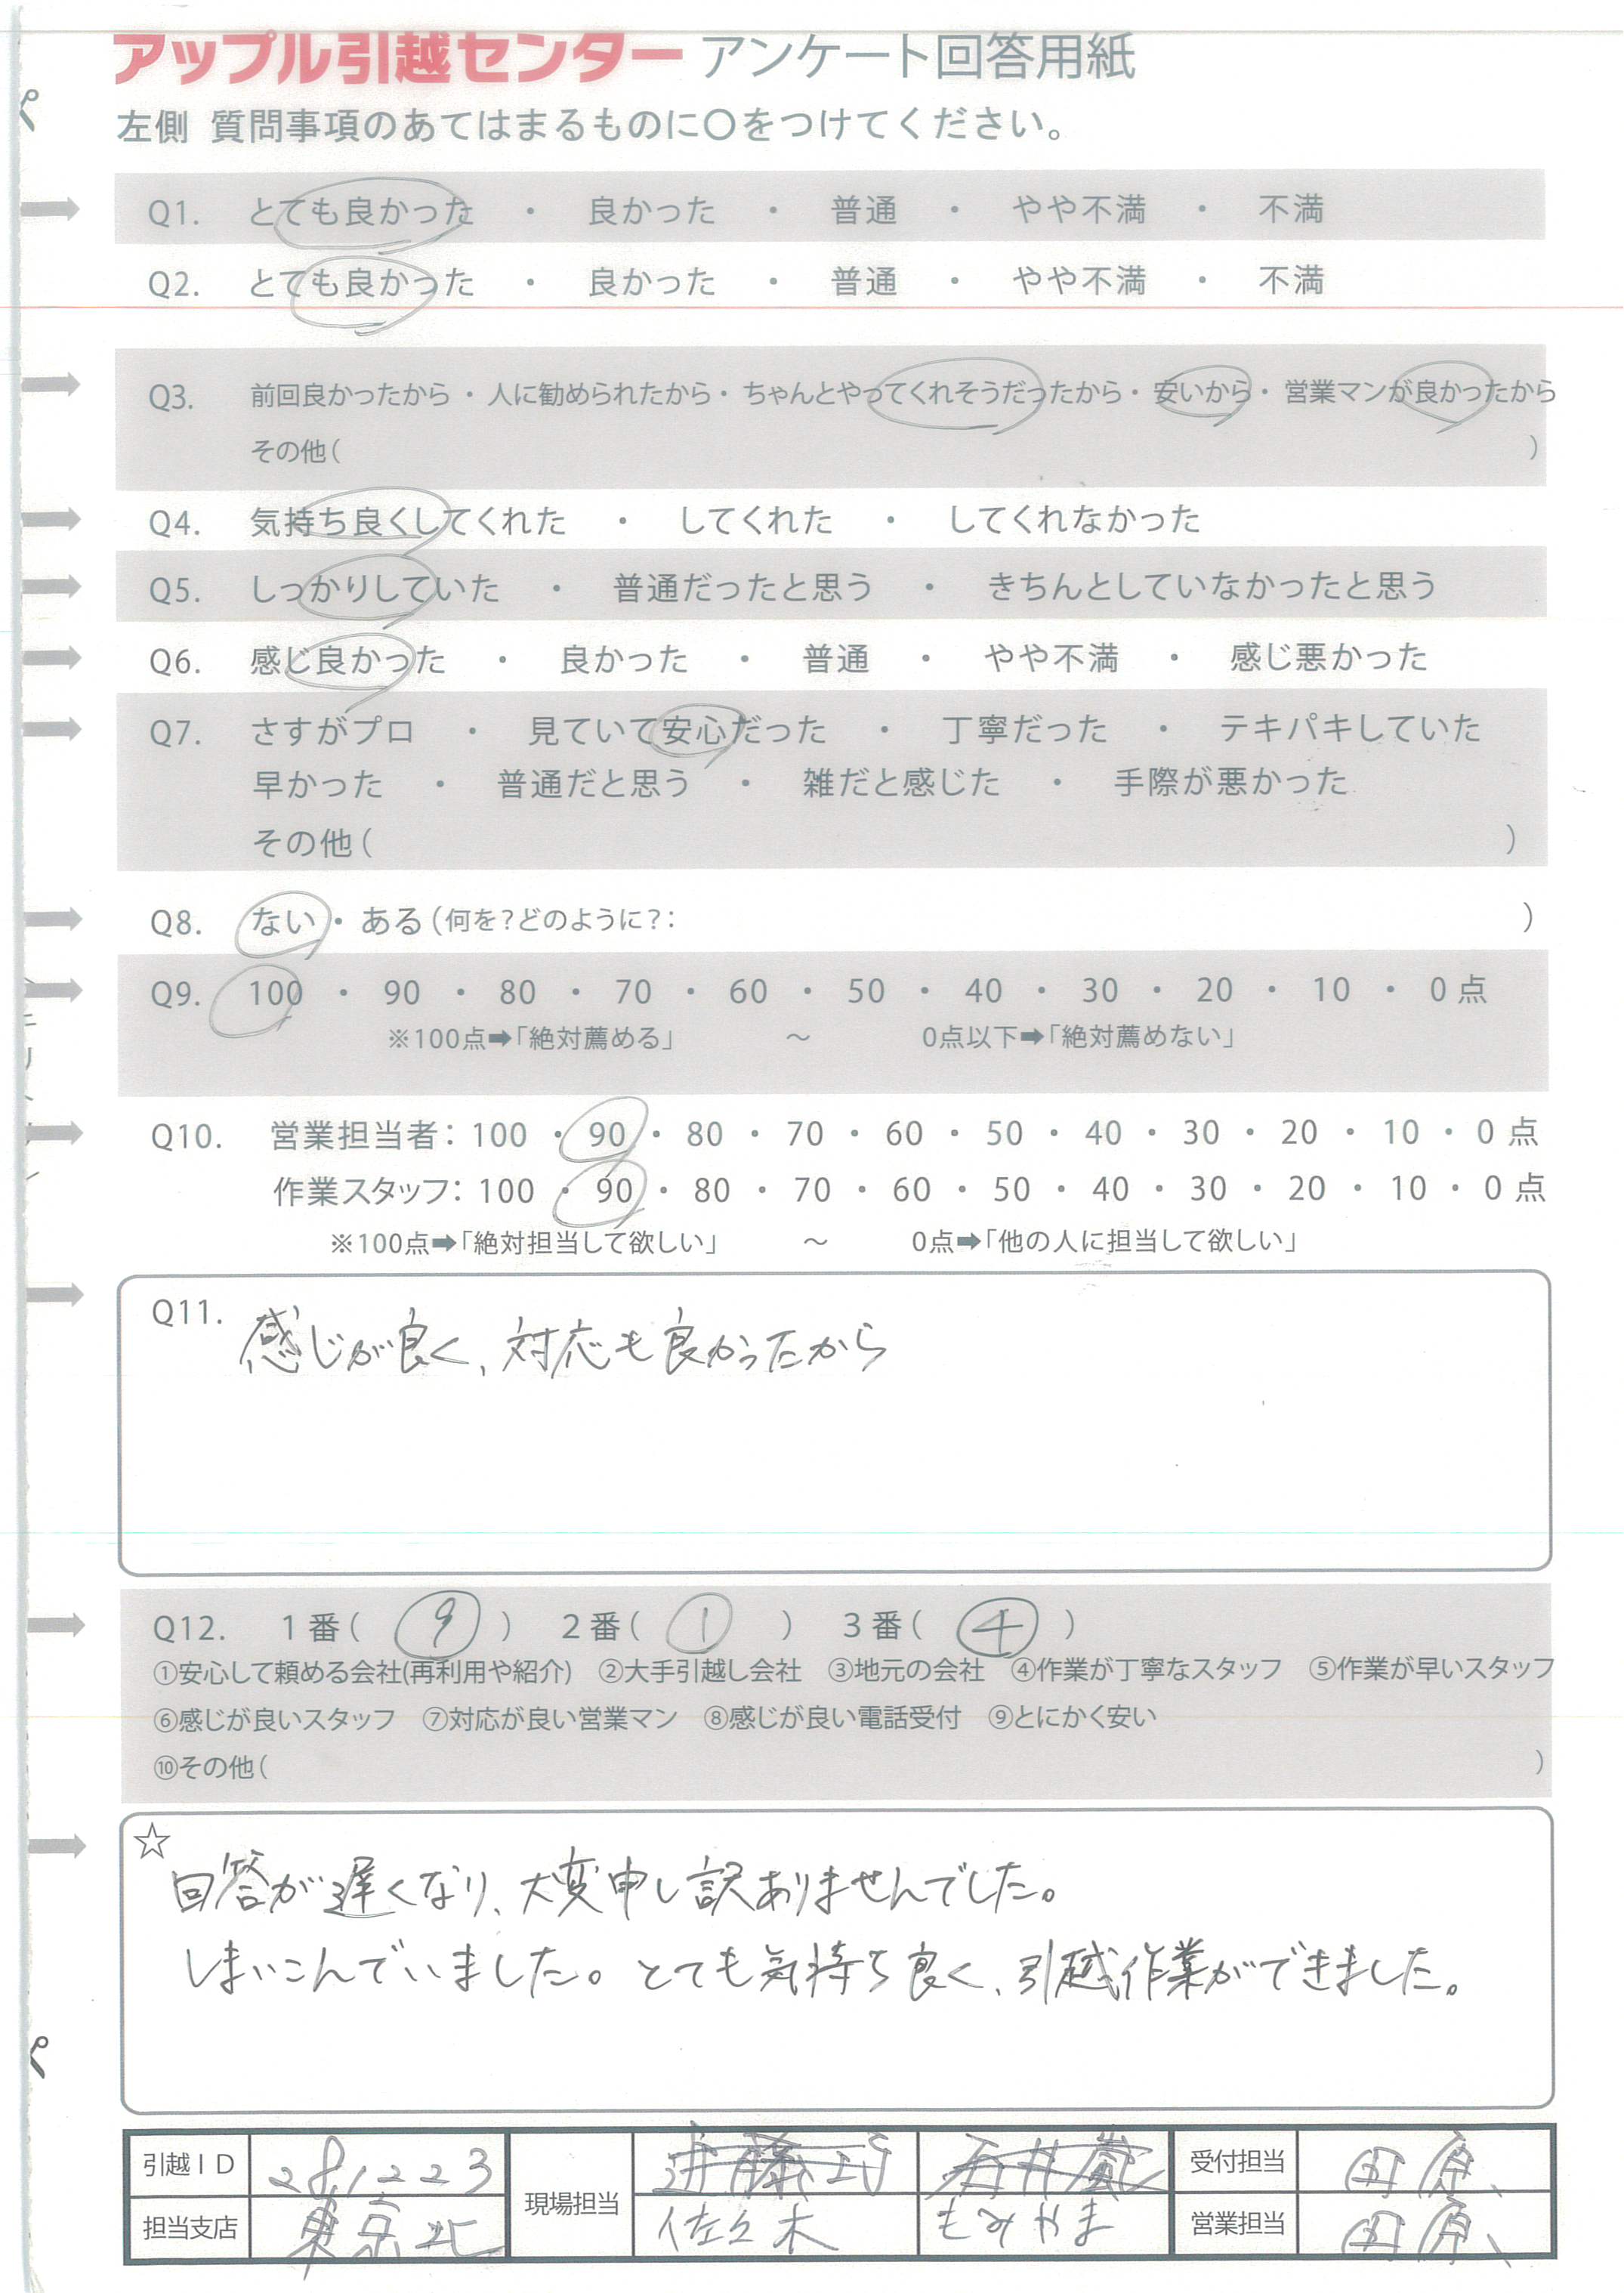 アップル引越センター アンケート回答用紙
左側 質問事項のあてはまるものに〇をつけてください。
Q1. とても良かった ・ 良かった ・ 普通 ・ やや不満 ・ 不満
Q2. とても良かった ・ 良かった ・ 普通 ・ やや不満 ・ 不満
Q3. 前回良かったから ・ 人に勧められたから ・ ちゃんとやってくれそうだったから ・ 安いから ・ 営業マンが良かったから
その他( )
Q4. 気持ち良くしてくれた ・ してくれた ・ してくれなかった
Q5. しっかりしていた ・ 普通だったと思う ・ きちんとしていなかったと思う
Q6. 感じ良かった ・ 良かった ・ 普通 ・ やや不満 ・ 感じ悪かった
Q7. さすがプロ ・ 見ていて安心だった ・ 丁寧だった ・ テキパキしていた
早かった ・ 普通だと思う ・ 雑だと感じた ・ 手際が悪かった
その他( )
Q8. ない ・ ある(何を?どのように?: )
Q9. 100 ・ 90 ・ 80 ・ 70 ・ 60 ・ 50 ・ 40 ・ 30 ・ 20 ・ 10 ・ 0点
※100点➡「絶対薦める」 〜 0点以下➡「絶対薦めない」
Q10. 営業担当者: 100 ・ 90 ・ 80 ・ 70 ・ 60 ・ 50 ・ 40 ・ 30 ・ 20 ・ 10 ・ 0点
作業スタッフ: 100 ・ 90 ・ 80 ・ 70 ・ 60 ・ 50 ・ 40 ・ 30 ・ 20 ・ 10 ・ 0点
※100点➡「絶対担当して欲しい」 〜 0点➡「他の人に担当して欲しい」
Q11. 感じが良く、対応も良かったから
Q12. 1番( 9 ) 2番( 1 ) 3番( 4 )
①安心して頼める会社(再利用や紹介) ②大手引越し会社 ③地元の会社 ④作業が丁寧なスタッフ ⑤作業が早いスタッフ
⑥感じが良いスタッフ ⑦対応が良い営業マン ⑧感じが良い電話受付 ⑨とにかく安い
⑩その他( )
☆
回答が遅くなり、大変申し訳ありませんでした。
しまいこんでいました。とても気持ち良く、引越作業ができました。
引越ID 281223 現場担当 受付担当 田原
担当支店 東京北 佐々木 もみやま 営業担当 田原